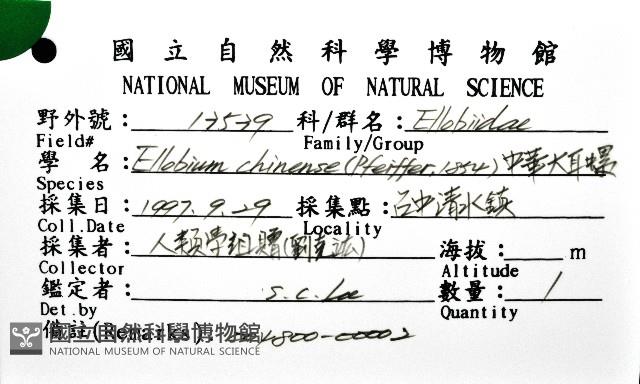 國立自然科學博物館
NATIONAL MUSEUM OF NATURAL SCIENCE
野外號：17579 科/群名：Ellobiidae
Field# Family/Group
學 名：Ellobium chinense (Pfeiffer, 1854) 中華大耳螺
Species
採集日：1997.9.29 採集點：台中清水鎮
Coll.Date Locality
採集者：人類學組贈(劉克竑) 海拔： m
Collector Altitude
鑑定者：S.C. Lee 數量：1
Det.by Quantity
備註(Remarks) -00002
國立自然科學博物館
NATIONAL MUSEUM OF NATURAL SCIENCE